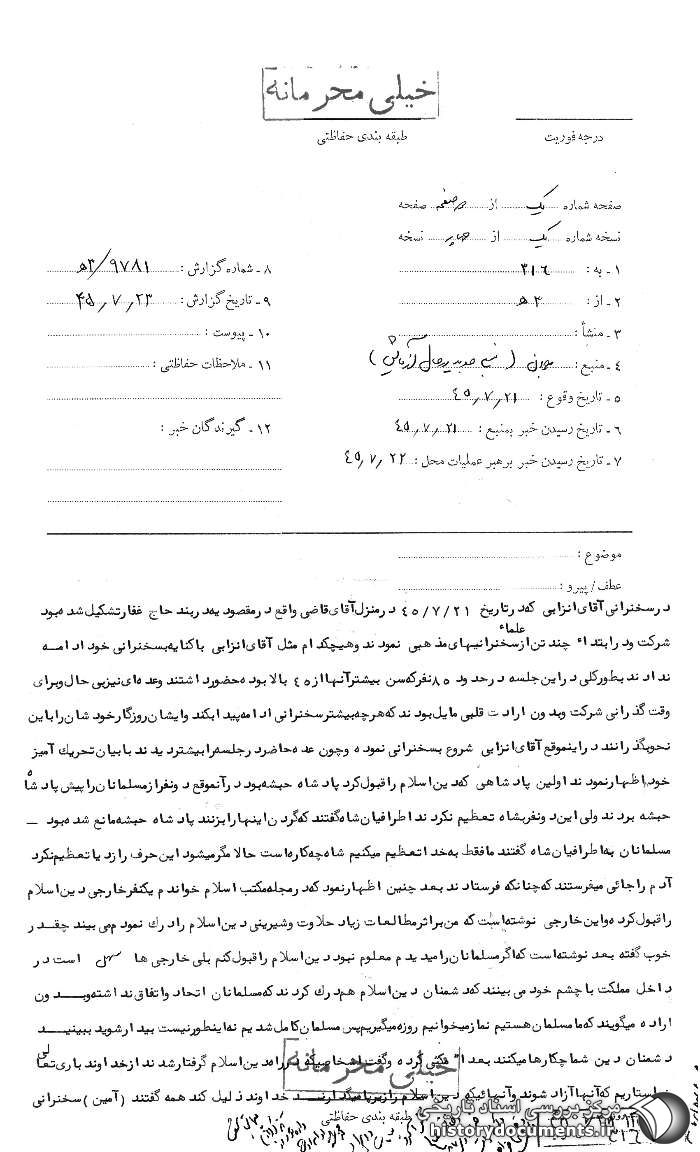 خیلی محرمانه
درجه فوریت
طبقه بندی حفاظتی
صفحه شماره یک از صفحه
نسخه شماره یک از چهار نسخه
۱ـ به : ۳۱٦
۲ـ از : ۵۴
۳ـ منشأ :
۴ـ منبع :
۵ـ تاریخ وقوع : ٤۵٫۷٫۲۱
۶ـ تاریخ رسیدن خبر بمنبع : ٤۵٫۷٫۲۱
۷ـ تاریخ رسیدن خبر برهبر عملیات محل : ٤۵٫۷٫۲۲
۸ـ شماره گزارش : ۵۳/۹۷۸۱
۹ـ تاریخ گزارش : ۴۵٫۷٫۲۳
۱۰ـ پیوست :
۱۱ـ ملاحظات حفاظتی :
۱۲ـ گیرندگان خبر :
موضوع :
عطف/پیرو :
در سخنرانی آقای انزابی که در تاریخ ٤۵/۷/۲۱ در منزل آقای قاضی واقع در مقصودیه دربند حاج غفار تشکیل شده بود
علماء
شرکت و در ابتداء چند تن از سخنرانیهای مذهبی نمودند و هیچکدام مثل آقای انزابی با کنایه بسخنرانی خود ادامه
ندادند بطور کلی در این جلسه در حدود ۸۵ نفر که سن بیشتر آنها از ٤۵ بالا بوده حضور داشتند و عده‌ای نیز بی حال و برای
وقت گذرانی شرکت و بدون ارادت قلبی مایل بودند که هر چه بیشتر سخنرانی ادامه پیدا بکند و ایشان روزگار خودشان را باین
نحو بگذرانند در اینموقع آقای انزابی شروع بسخنرانی نموده و چون عده حاضر در جلسه را بیشتر دیدند با بیان تحریك آمیز
خود اظهار نمودند اولین پادشاهی که دین اسلام را قبول کرد پادشاه حبشه بود در آنموقع دو نفر از مسلمانان را پیش پادشاه
حبشه بردند ولی این دو نفر بشاه تعظیم نکردند اطرافیان شاه گفتند که گردن اینها را بزنند پادشاه حبشه مانع شده بود ـ
مسلمانان به اطرافیان شاه گفتند ما فقط به خدا تعظیم میکنیم شاه چه کاره است حالا مگر میشود این حرف را زد یا تعظیم نکرد
آدم را جائی میفرستند که چنانکه فرستادند بعد چنین اظهار نمود که در مجله مکتب اسلام خواندم یکنفر خارجی دین اسلام
را قبول کرده و این خارجی نوشته است که من بر اثر مطالعات زیاد حلاوت و شیرینی دین اسلام را درك نمودم می بیند چقدر
خوب گفته بعد نوشته است که اگر مسلمانان را میدیدم معلوم نبود دین اسلام را قبول کنم بلی خارجی ها سهل است در
داخل مملکت با چشم خود می بینند که دشمنان دین اسلام هم درك کردند که مسلمانان اتحاد و اتفاق نداشته و بدون
اراده میگویند که ما مسلمان هستیم نماز میخوانیم روزه میگیریم پس مسلمان کامل شدیم نه اینطور نیست بیدار شوید ببینید
دشمنان دین شما چکارها میکنند بعد کرده و گفت اشخاصیکه در راه دین اسلام گرفتار شدند از خداوند باری تعالی
خواستاریم که آنها آزاد شوند و آنهائیکه دین اسلام را زیر پا میگذارند خداوند ذلیل کند همه گفتند (آمین) سخنرانی
خیلی محرمانه
طبقه بندی حفاظتی
مرکز بررسی اسناد تاریخی
historydocuments.ir